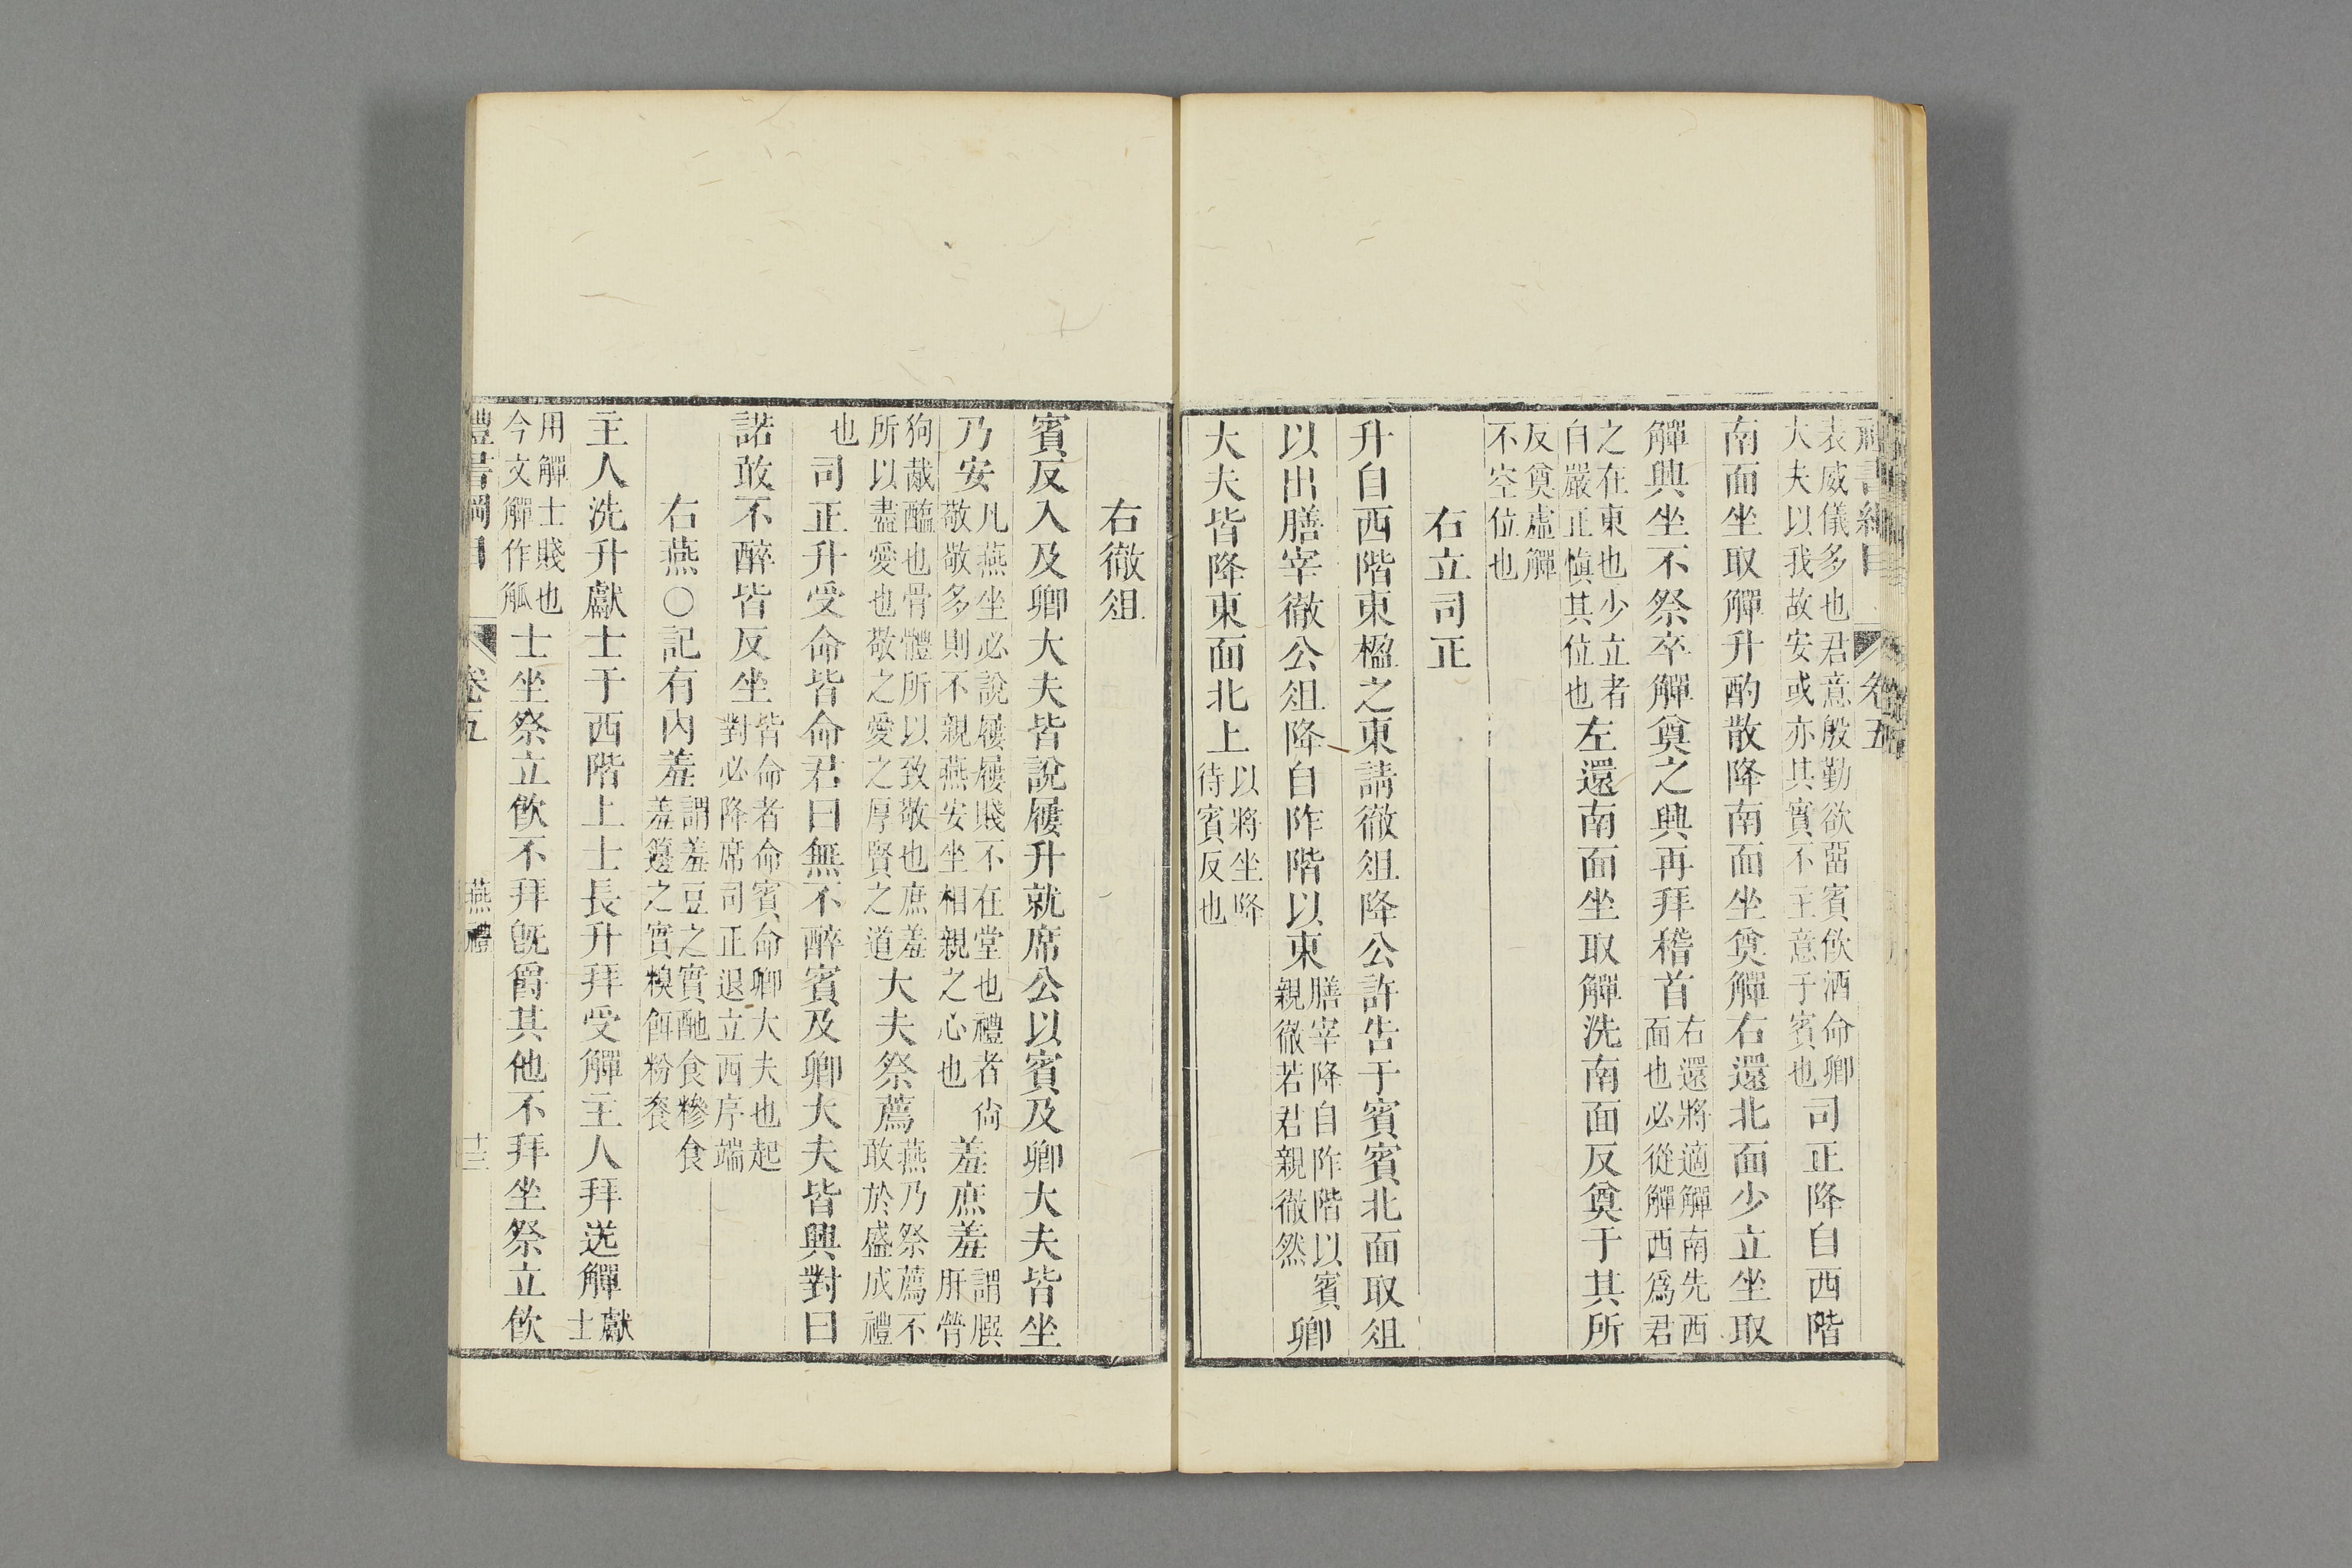 表威儀多也君意殷勤欲盃賓飲酒命卿
大夫以我故安或亦其實不主意于賓也司正降自西階
南面坐取觶升酌散降南面坐奠觶右還北面少立坐取
觶興坐不祭卒觶奠之興再拜稽首右還將適觶南先西
面也必從觶西爲君
之在東也少立者
自嚴正愼其位也左還南面坐取觶洗南面反奠于其所
反奠虛觶
不空位也
右立司正
升自西階東楹之東請徹俎降公許告于賓賓北面取俎
以出膳宰徹公俎降自阼階以東膳宰降自阼階以賓
親徹若君親徹然卿
大夫皆降東面北上以將坐降
待賓反也
右徹俎
賓反入及卿大夫皆說屨升就席公以賓及卿大夫皆坐
乃安凡燕坐必說屨屨賤不在堂也禮者尙
敬敬多則不親燕安坐相親之心也羞庶羞謂䐑
肝膋
狗胾醢也骨體所以致敬也庶羞
所以盡愛也敬之愛之厚賢之道大夫祭薦燕乃祭薦不
敢於盛成禮
也司正升受命皆命君曰無不醉賓及卿大夫皆興對曰
諾敢不醉皆反坐皆命者命賓命卿大夫也起
對必降席司正退立西序端
右燕○記有內羞謂羞豆之實酏食糝食
羞籩之實糗餌粉餈
主人洗升獻士于西階上士長升拜受觶主人拜送觶獻
士
用觶士賤也
今文觶作觚士坐祭立飲不拜旣爵其他不拜坐祭立飲
禮書綱目
卷五
燕禮
十三